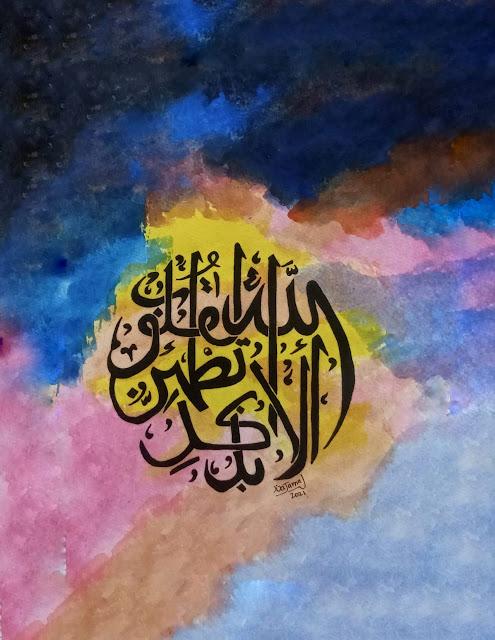 ألا بذكر الله تطمئن القلوب
2021